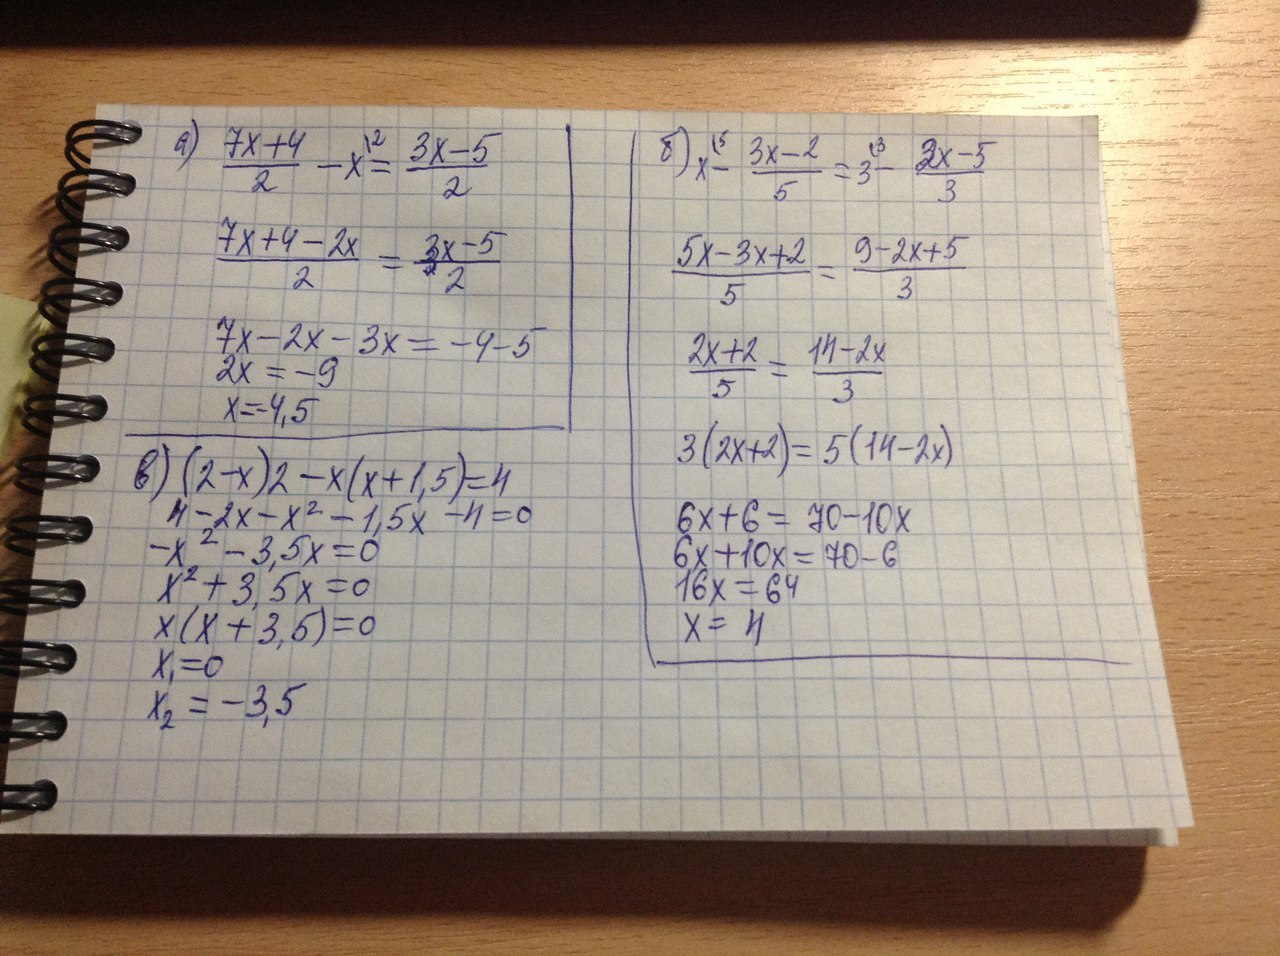 а) (7x+4)/2 - x^(2 = (3x-5)/2
(7x+4-2x)/2 = (3x-5)/2
7x-2x-3x = -4-5
2x = -9
x=-4,5
в) (2-x)2 -x(x+1,5)=4
4-2x-x² -1,5x -4=0
-x² -3,5x=0
x² +3,5x=0
x(x+3,5)=0
x₁=0
x₂ = -3,5
б) x^(5 - (3x-2)/5 = 3^(3 - (2x-5)/3
(5x-3x+2)/5 = (9-2x+5)/3
(2x+2)/5 = (14-2x)/3
3(2x+2)= 5(14-2x)
6x+6= 70-10x
6x+10x= 70-6
16x=64
x= 4